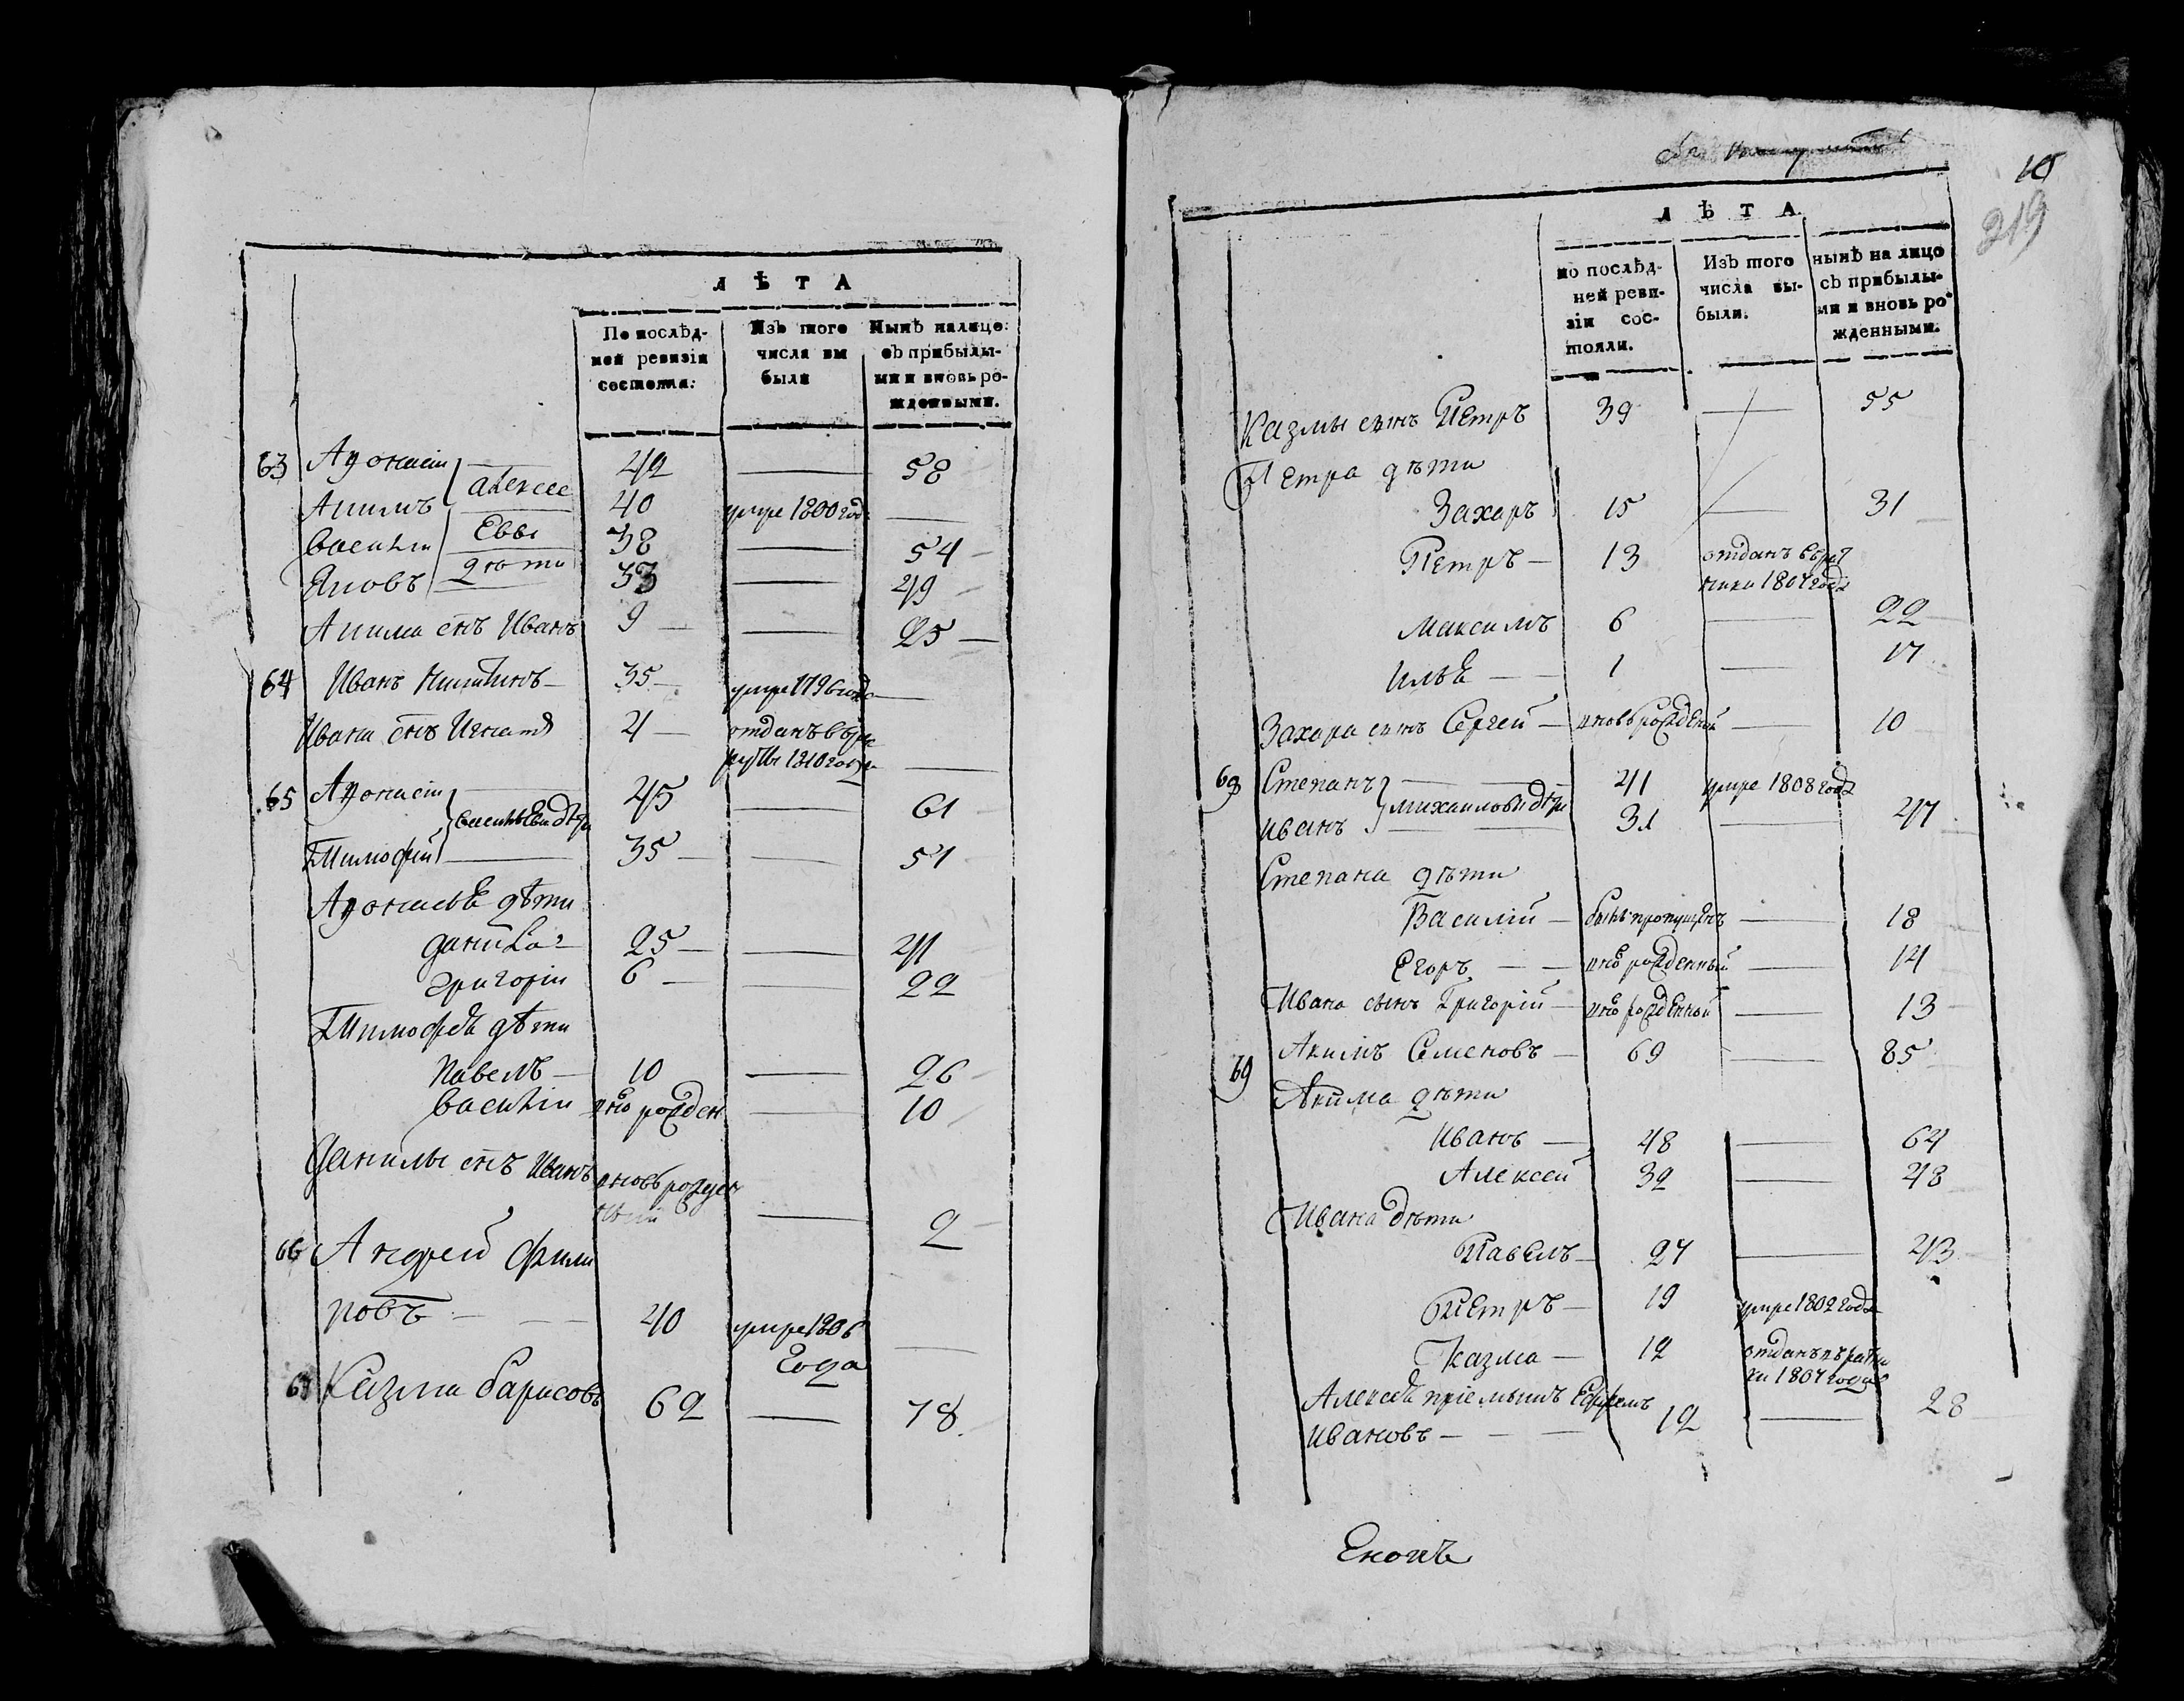 ЛѢТА
По послѣд-
ней ревизіи
состояли:
Изъ того
числа вы
были
Нынѣ налицо
съ прибылы-
ми и вновь ро-
жденными.
63 Афонасіи 42 — 58
Алексее
Акимъ 40 умре 1800 год —
Василіи 38 — 54
Евы
Яковъ 33 — 49
дѣти
Акима снъ Иванъ 9 — 25
64 Иванъ Никитинъ 35 умре 1796 года —
Ивана снъ Игнатѣ 4 отданъ в ре
круты 1810 года —
65 Афонасіи 45 — 61
Василѣевы дѣти
Тимофѣй 35 — 51
Афонасья дѣти
Данила 25 — 41
Григоріи 6 — 22
Тимофея дѣти
Павелъ 10 — 26
Василіи вно рожден — 10
Данилы снъ Иванъ вновь рожден
ный — 2
66 Андрей Фили
повъ — 40 умре 1806
года —
67 Казма Барисовъ 62 — 78
10
219
ЛѢТА
по послѣд-
ней реви-
зіи сос-
тояли.
Изъ того
числа вы-
были.
нынѣ на лицо
съ прибылы-
ми и вновь ро-
жденными.
Казмы сынъ Петръ 39 — 55
Петра дѣти
Захаръ 15 — 31
Петръ — 13 отданъ в рат
ники 1807 года
Максимъ 6 — 22
Илья — 1 — 17
Захара сынъ Сергей — вновь рожденый — 10
68 Степанъ 41 умре 1808 года
Михаиловы дѣти
Иванъ 31 — 47
Степана дѣти
Василій — былъ пропущенъ — 18
Егоръ — вно рожденный — 14
Ивана сынъ Григорій — вно рожденный — 13
69 Акимъ Семеновъ — 69 — 85
Акима дѣти
Иванъ — 48 — 64
Алексей 32 — 48
Ивана дѣти
Павелъ — 27 — 43
Петръ — 19 умре 1802 года
Казма — 12 отданъ въ ратни
ки 1807 года
Алексея пріемышъ Ефремъ
Ивановъ — 12 — 28